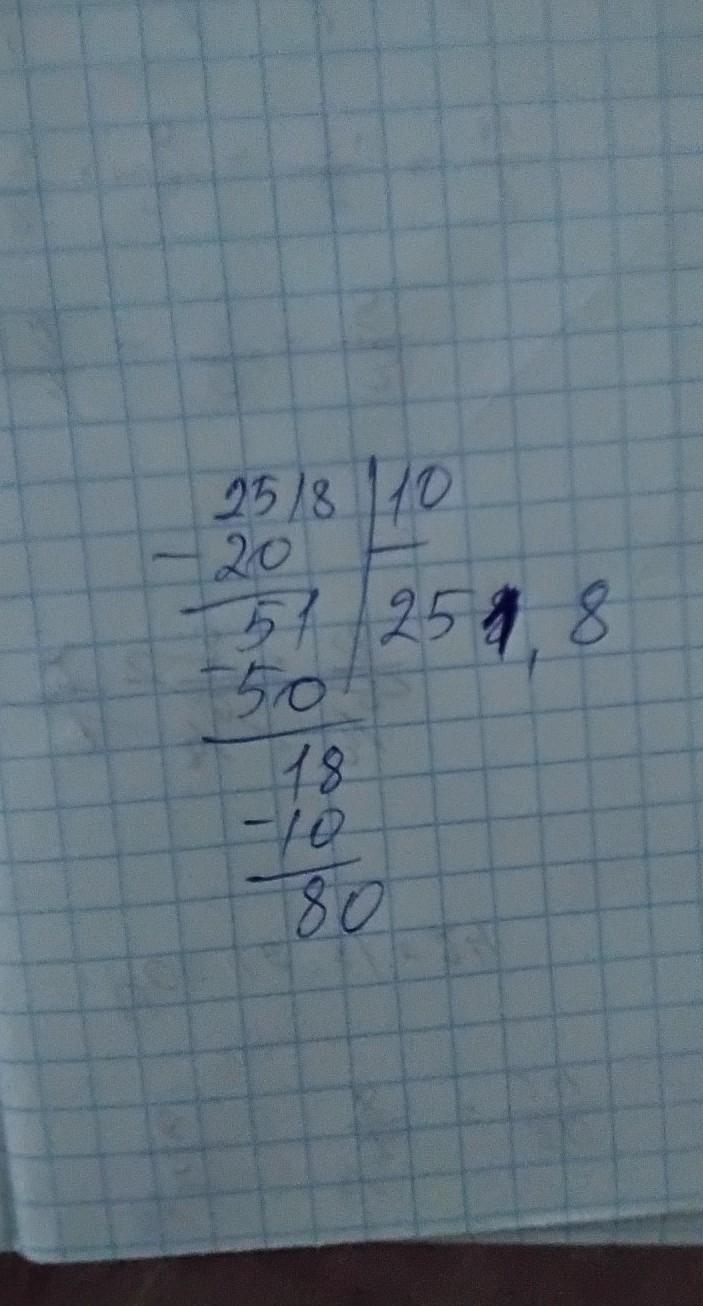 2518 10
- 20
51 251, 8
- 50
18
- 10
80